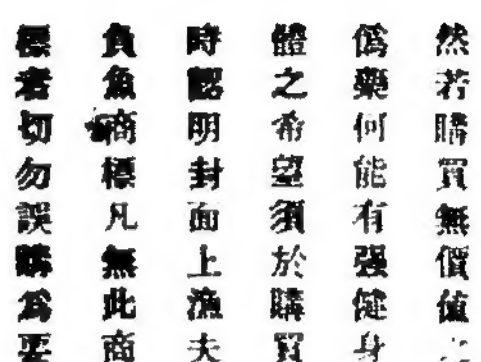 然若購買無價值之
偽藥何能有强健身
體之希望須於購買
時認明封面上漁夫
負魚商標凡無此商
標者切勿誤購為要